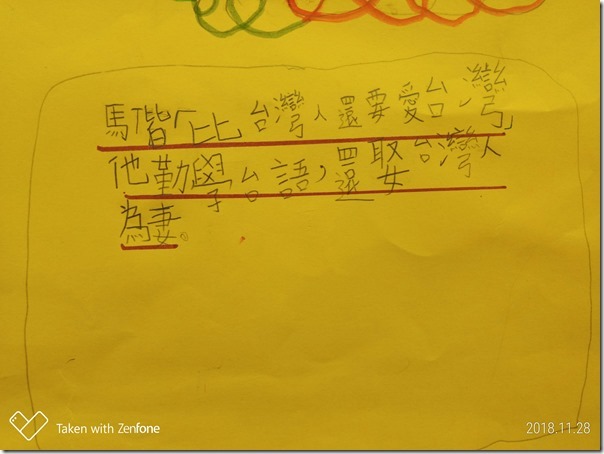 馬偕「比台灣人還要愛台灣」
他勤學台語，還娶台灣人
為妻。
Taken with Zenfone
2018.11.28